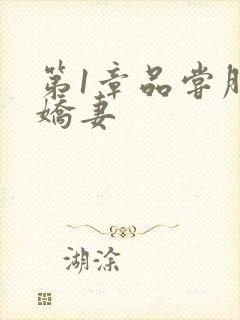 第1章品尝朋
娇妻
湖涂